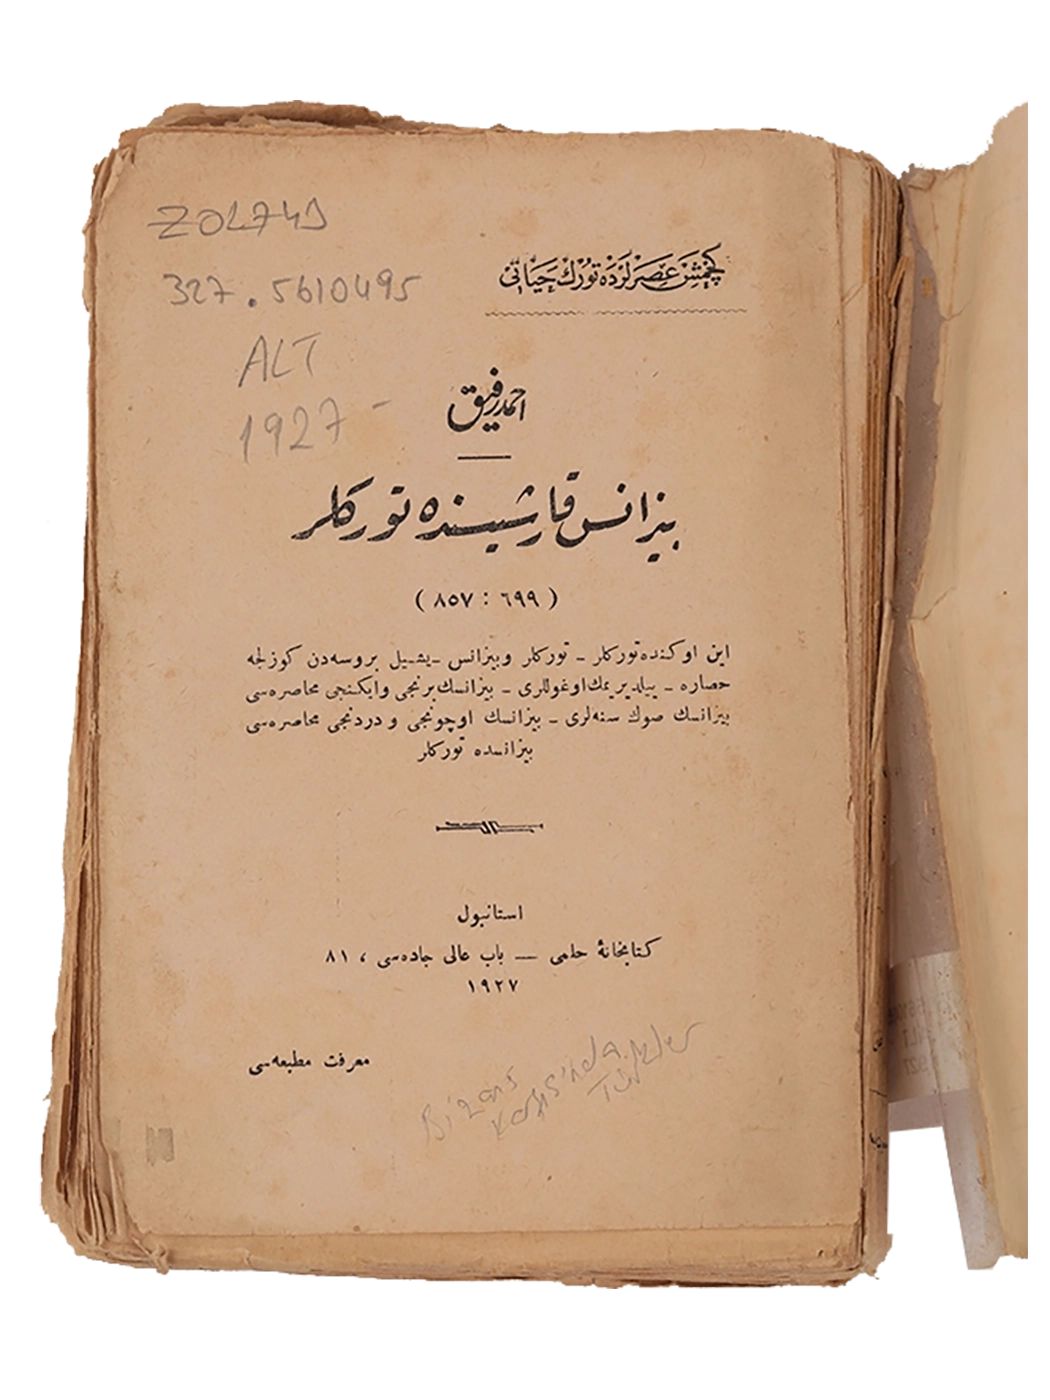 ZOL749
327.5610495
ALT
1927-
كچمش عصرلرده تورك حیاتی
احمد رفیق
بیزانس قارشیسنده توركلر
( ٦٩٩ : ٨٥٧ )
این اوكنده توركلر ـ توركلر و بیزانس ـ یشیل بروسه‌دن كوزلجه
حصاره ـ ییلدیریمك اوغوللری ـ بیزانسك برنجی و ایكنجی محاصره‌سی
بیزانسك صوك سنه‌لری ـ بیزانسك اوچونجی و دردنجی محاصره‌سی
بیزانسده توركلر
استانبول
كتابخانهٔ حلمی — باب عالی جاده‌سی ، ٨١
١٩٢٧
معرفت مطبعه‌سی
Bizans
Karşısında Türkler